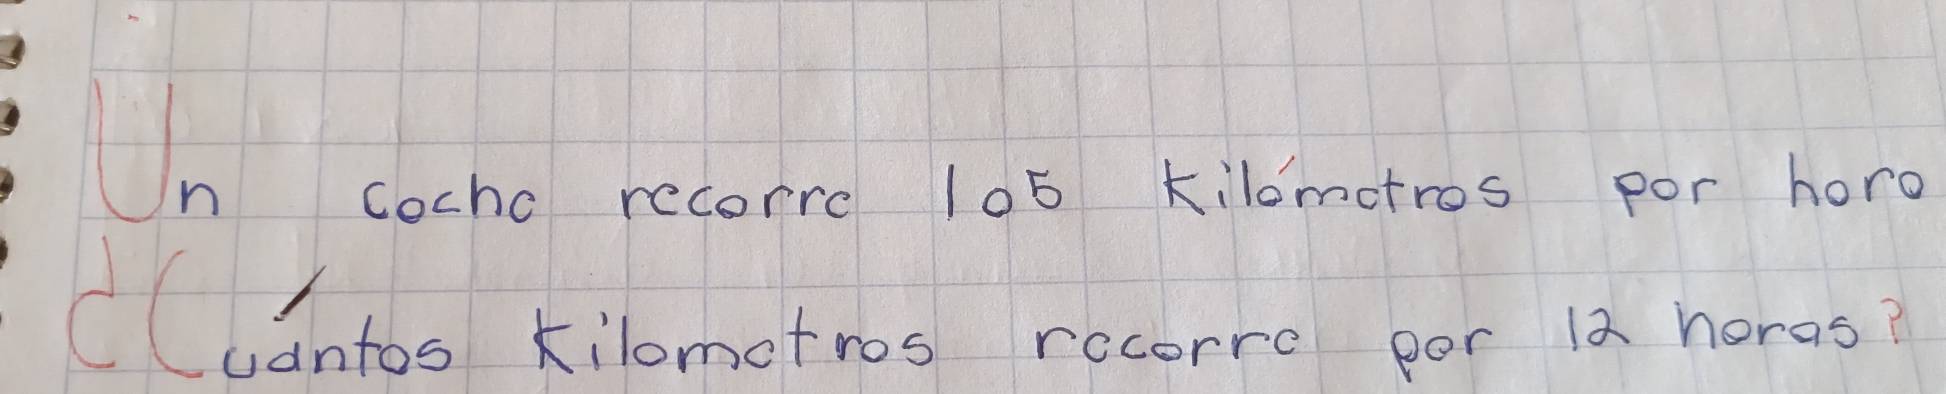 Un coche recorre 105 Kilómetros por hora
¿Cuántos Kilometros recorre por 12 horas?